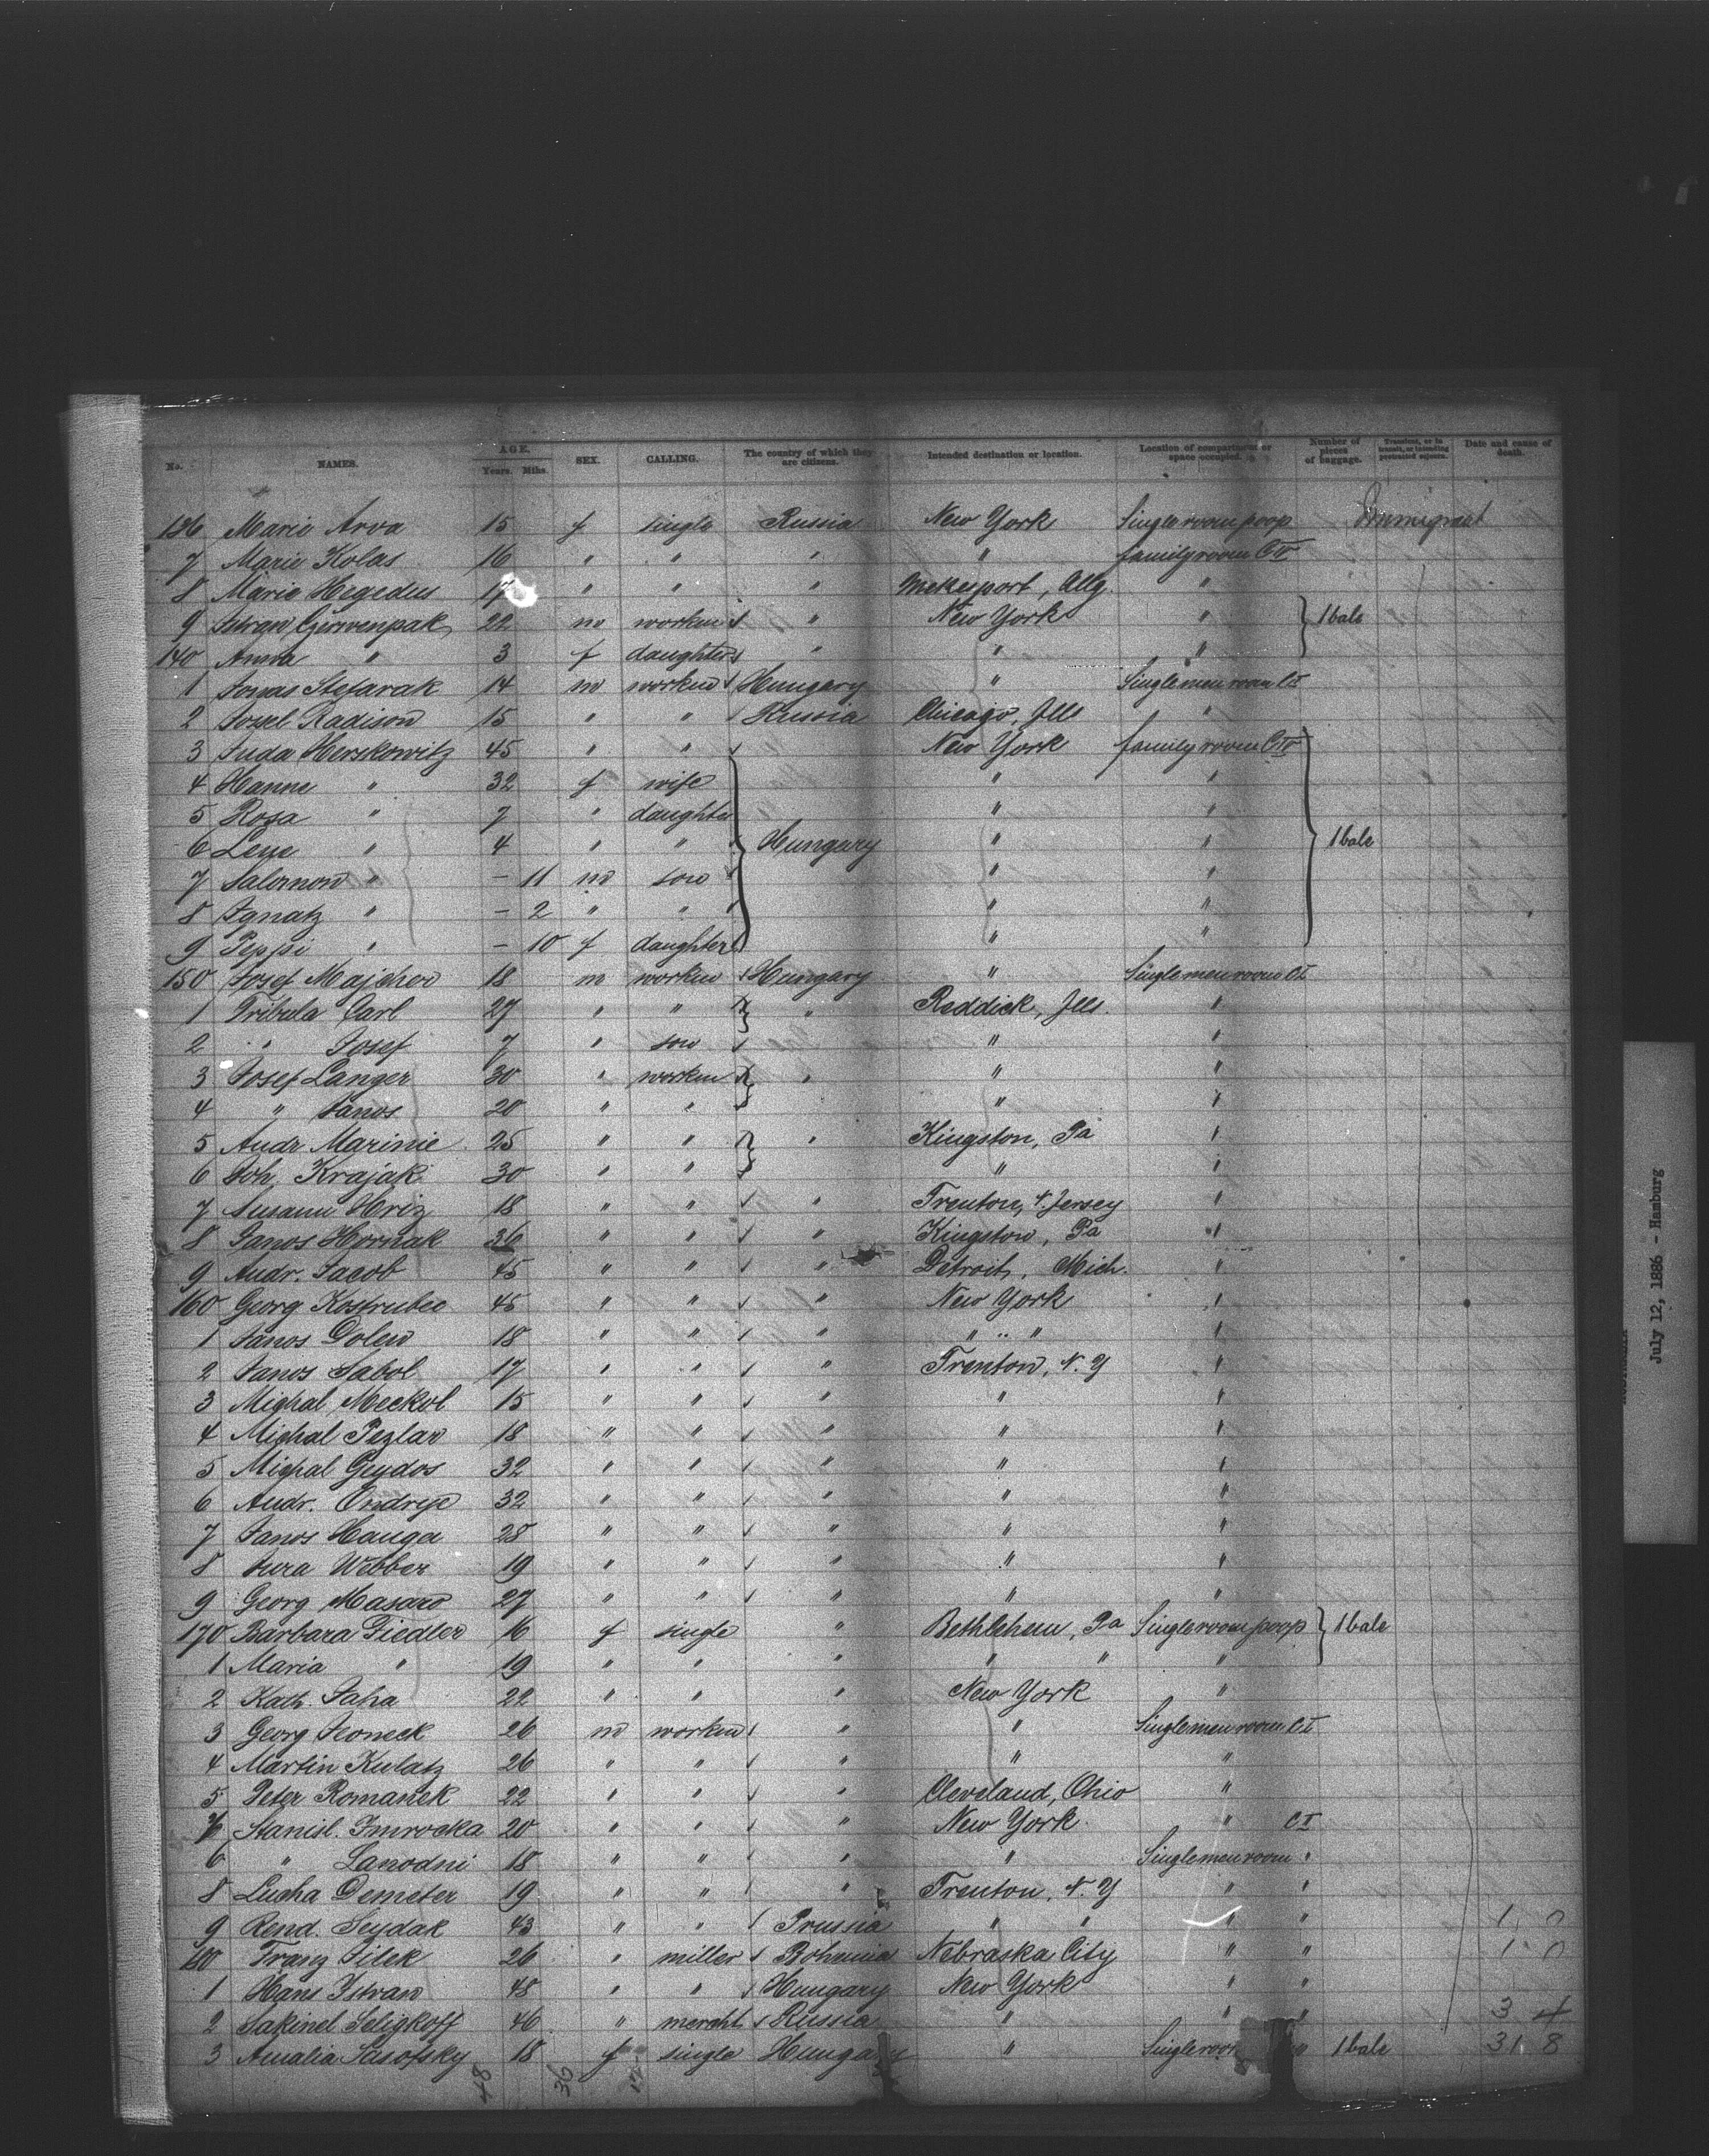 No. NAMES. AGE. Years. Mths. SEX. CALLING. The country of which they are citizens. Intended destination or location. Location of compartment or space occupied. Number of pieces of baggage. Transient, or in transit, or intending protracted sojourn. Date and cause of death.
136 Marie Arva 15 f single Russia New York Single room poop Immigrant
7 Marie Kolas 16 " " " " family room C IV
8 Marie Hegedus 17 " " " Mckeesport, Allg. "
9 Istvan Czerwenpak 22 m workm " New York " 1 bale
140 Anna " 3 f daughter " " "
1 Jonas Stefarak 14 m workm Hungary " Single men room CI
2 Josel Radison 15 " " Russia Chicago, Ills "
3 Juda Herskowitz 45 " " New York family room C IV
4 Hanne " 32 f wife " "
5 Rosa " 7 " daughter " "
6 Lene " 4 " " Hungary " " 1 bale
7 Salomon " - 11 m son " "
8 Ignatz " - 2 " " " "
9 Peppi " - 10 f daughter " "
150 Josef Majcher 18 m workm Hungary " Single men room CI
1 Tribula Carl 27 " " " Reddick, Ills. "
2 " Josef 7 " son " "
3 Josef Langer 30 " workm " " "
4 " Janos 20 " " " "
5 Andr Marinie 25 " " " Kingston, Pa "
6 Joh. Krajak 30 " " " "
7 Susann Hriz 18 " " " Trenton, N. Jersey "
8 Janos Hornak 36 " " " Kingston, Pa "
9 Andr. Jacob 45 " " " Detroit, Mich. "
160 Georg Kostrubec 45 " " " New York "
1 Janos Dolen 18 " " " " " "
2 Janos Sabol 17 " " " Trenton, N. Y "
3 Mighal Meckol 15 " " " " "
4 Mighal Pezlar 18 " " " " "
5 Mighal Geydos 32 " " " " "
6 Andr. Ondreje 32 " " " " "
7 Janos Hauga 28 " " " " "
8 Jura Webber 19 " " " " "
9 Georg Masaro 27 " " " " "
170 Barbara Fiedler 16 f single " Bethlehem, Pa Single room poop 1 bale
1 Maria " 19 " " " " " "
2 Kath. Jaha 22 " " " New York "
3 Georg Jeoneck 26 m workm " " Single men room CI
4 Martin Kulatz 26 " " " " "
5 Peter Romanek 22 " " " Cleveland, Ohio "
6 Stanisl. Imrocka 20 " " " New York " CI
6 " Lanodni 18 " " " " Single men room "
8 Lucha Demeter 19 " " " Trenton, N. Y " "
9 Rend. Seydak 43 " " Prussia " " " " 1 0
180 Franz Filek 26 " miller Bohemia Nebraska City " " 1 0
1 Hans Istvan 48 " " Hungary New York " "
2 Sakinel Seligkoff 46 " mercht Russia " " " 3 4
3 Amalia Sasofsky 18 f single Hungary " Single room 1 bale 31 8
48 36
July 12, 1886 - Hamburg